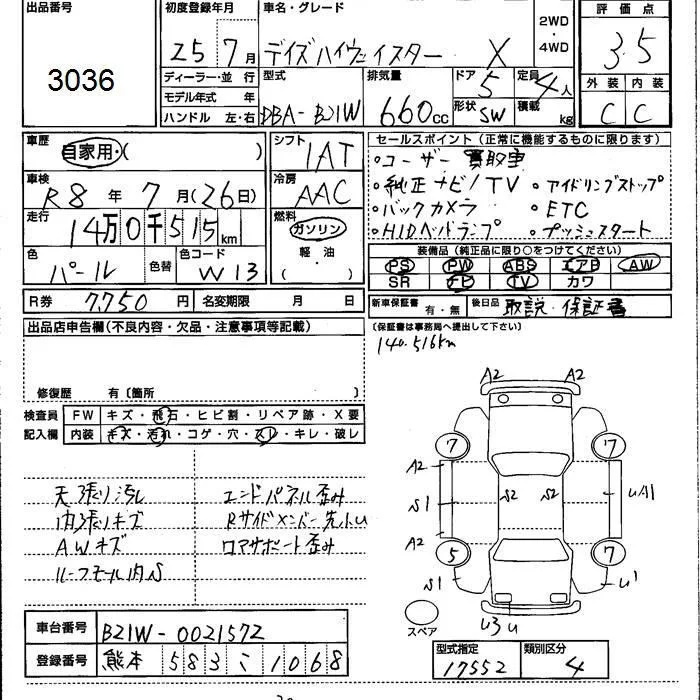 出品番号
3036
初度登録年月
25 年 7 月
車名・グレード
デイズハイウェイスター X
2WD・4WD
評価点
3.5
外装 内装
C C
ディーラー・並行
モデル年式 年
ハンドル 左・右
型式
DBA-B21W
排気量
660cc
ドア
5
形状
SW
定員
4人
積載
kg
車歴
自家用・( )
車検
R8年 7月(26日)
走行
14万0千515km
色
パール
色替
色コード
W13
シフト
IAT
冷房
AAC
燃料
ガソリン
軽・油
( )
R券 7,750 円
名変期限 月 日
セールスポイント(正常に機能するものに限ります)
・ユーザー買取車
・純正ナビ/TV ・アイドリングストップ
・バックカメラ ・ETC
・HIDヘッドランプ ・プッシュスタート
装備品(純正品に限り○をつけてください)
PS PW ABS エアB AW
SR ナビ TV カワ
新車保証書 有・無
後日品 取説・保証書
(保証書は事務局へ提出して下さい)
140.516km
出品店申告欄(不良内容・欠品・注意事項等記載)
修復歴 有〔箇所 〕
検査員記入欄
FW キズ・飛石・ヒビ割・リペア跡・X要
内装 キズ・汚れ・コゲ・穴・スレ・キレ・破レ
天張り汚れ エンドパネル歪み
内張りキズ Rサイドメンバー先トU
AWキズ ロアサポート歪み
ルーフモール内S
A2 A2
7 7
A2
S1 S2 S2 UA1
A2
5 7
S1 U1
U3 U
スペア
車台番号 B21W-0021572
登録番号 熊本 583 こ 1068
型式指定 類別区分
17552 4